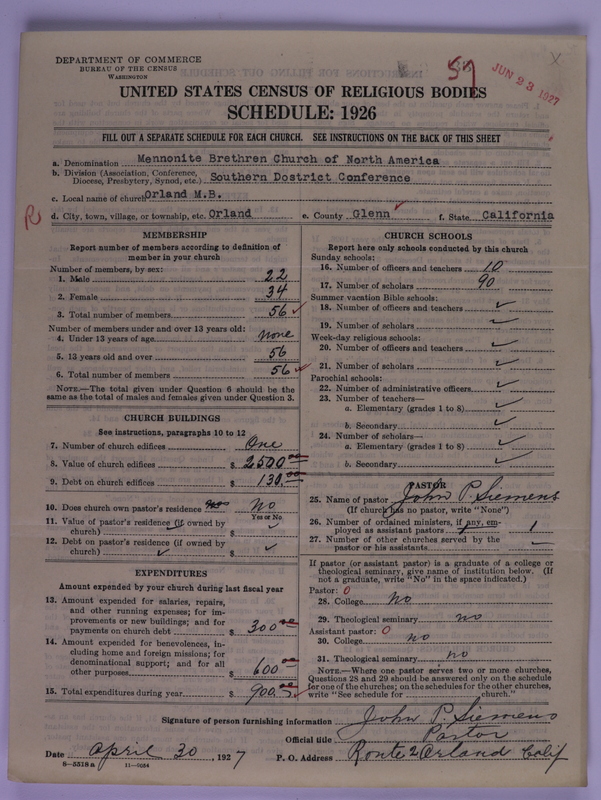 DEPARTMENT OF COMMERCE
BUREAU OF THE CENSUS
WASHINGTON
57
JUN 23 1927
X
UNITED STATES CENSUS OF RELIGIOUS BODIES
SCHEDULE: 1926
FILL OUT A SEPARATE SCHEDULE FOR EACH CHURCH. SEE INSTRUCTIONS ON THE BACK OF THIS SHEET
a. Denomination Mennonite Brethren Church of North America
b. Division (Association, Conference, Diocese, Presbytery, Synod, etc.) Southern Dostrict Conference
c. Local name of church Orland M.B.
d. City, town, village, or township, etc. Orland e. County Glenn f. State California
R
MEMBERSHIP
Report number of members according to definition of
member in your church
Number of members, by sex:
1. Male 22
2. Female 34
3. Total number of members 56
Number of members under and over 13 years old:
4. Under 13 years of age none
5. 13 years old and over 56
6. Total number of members 56
NOTE.—The total given under Question 6 should be
same as the total of males and females given under Question 3.
CHURCH BUILDINGS
See instructions, paragraphs 10 to 12
7. Number of church edifices One
8. Value of church edifices $ 2500.00
9. Debt on church edifices $ 130.00
10. Does church own pastor's residence No
Yes or No
11. Value of pastor's residence (if owned by
church) $
12. Debt on pastor's residence (if owned by
church) $
EXPENDITURES
Amount expended by your church during last fiscal year
13. Amount expended for salaries, repairs,
and other running expenses; for im-
provements or new buildings; and for
payments on church debt $ 300.00
14. Amount expended for benevolences, in-
cluding home and foreign missions; for
denominational support; and for all
other purposes $ 600.00
15. Total expenditures during year $ 900.00
CHURCH SCHOOLS
Report here only schools conducted by this church
Sunday schools:
16. Number of officers and teachers 10
17. Number of scholars 90
Summer vacation Bible schools:
18. Number of officers and teachers
19. Number of scholars
Week-day religious schools:
20. Number of officers and teachers
21. Number of scholars
Parochial schools:
22. Number of administrative officers
23. Number of teachers—
a. Elementary (grades 1 to 8)
b. Secondary
24. Number of scholars—
a. Elementary (grades 1 to 8)
b. Secondary
PASTOR
25. Name of pastor John P. Siemens
(If church has no pastor, write "None")
26. Number of ordained ministers, if any, em-
ployed as assistant pastors 1
27. Number of other churches served by the
pastor or his assistants
If pastor (or assistant pastor) is a graduate of a college or
theological seminary, give name of institution below. (If
not a graduate, write "No" in the space indicated.)
Pastor: 0
28. College No
29. Theological seminary no
Assistant pastor: 0
30. College no
31. Theological seminary no
NOTE.—Where one pastor serves two or more churches,
Questions 28 and 29 should be answered only on the schedule
for one of the churches; on the schedules for the other churches,
write "See schedule for church."
Signature of person furnishing information John P. Siemens
Official title Pastor
Date April 30, 1927 P. O. Address Route 2 Orland Calif
8—5518 a 11—9084